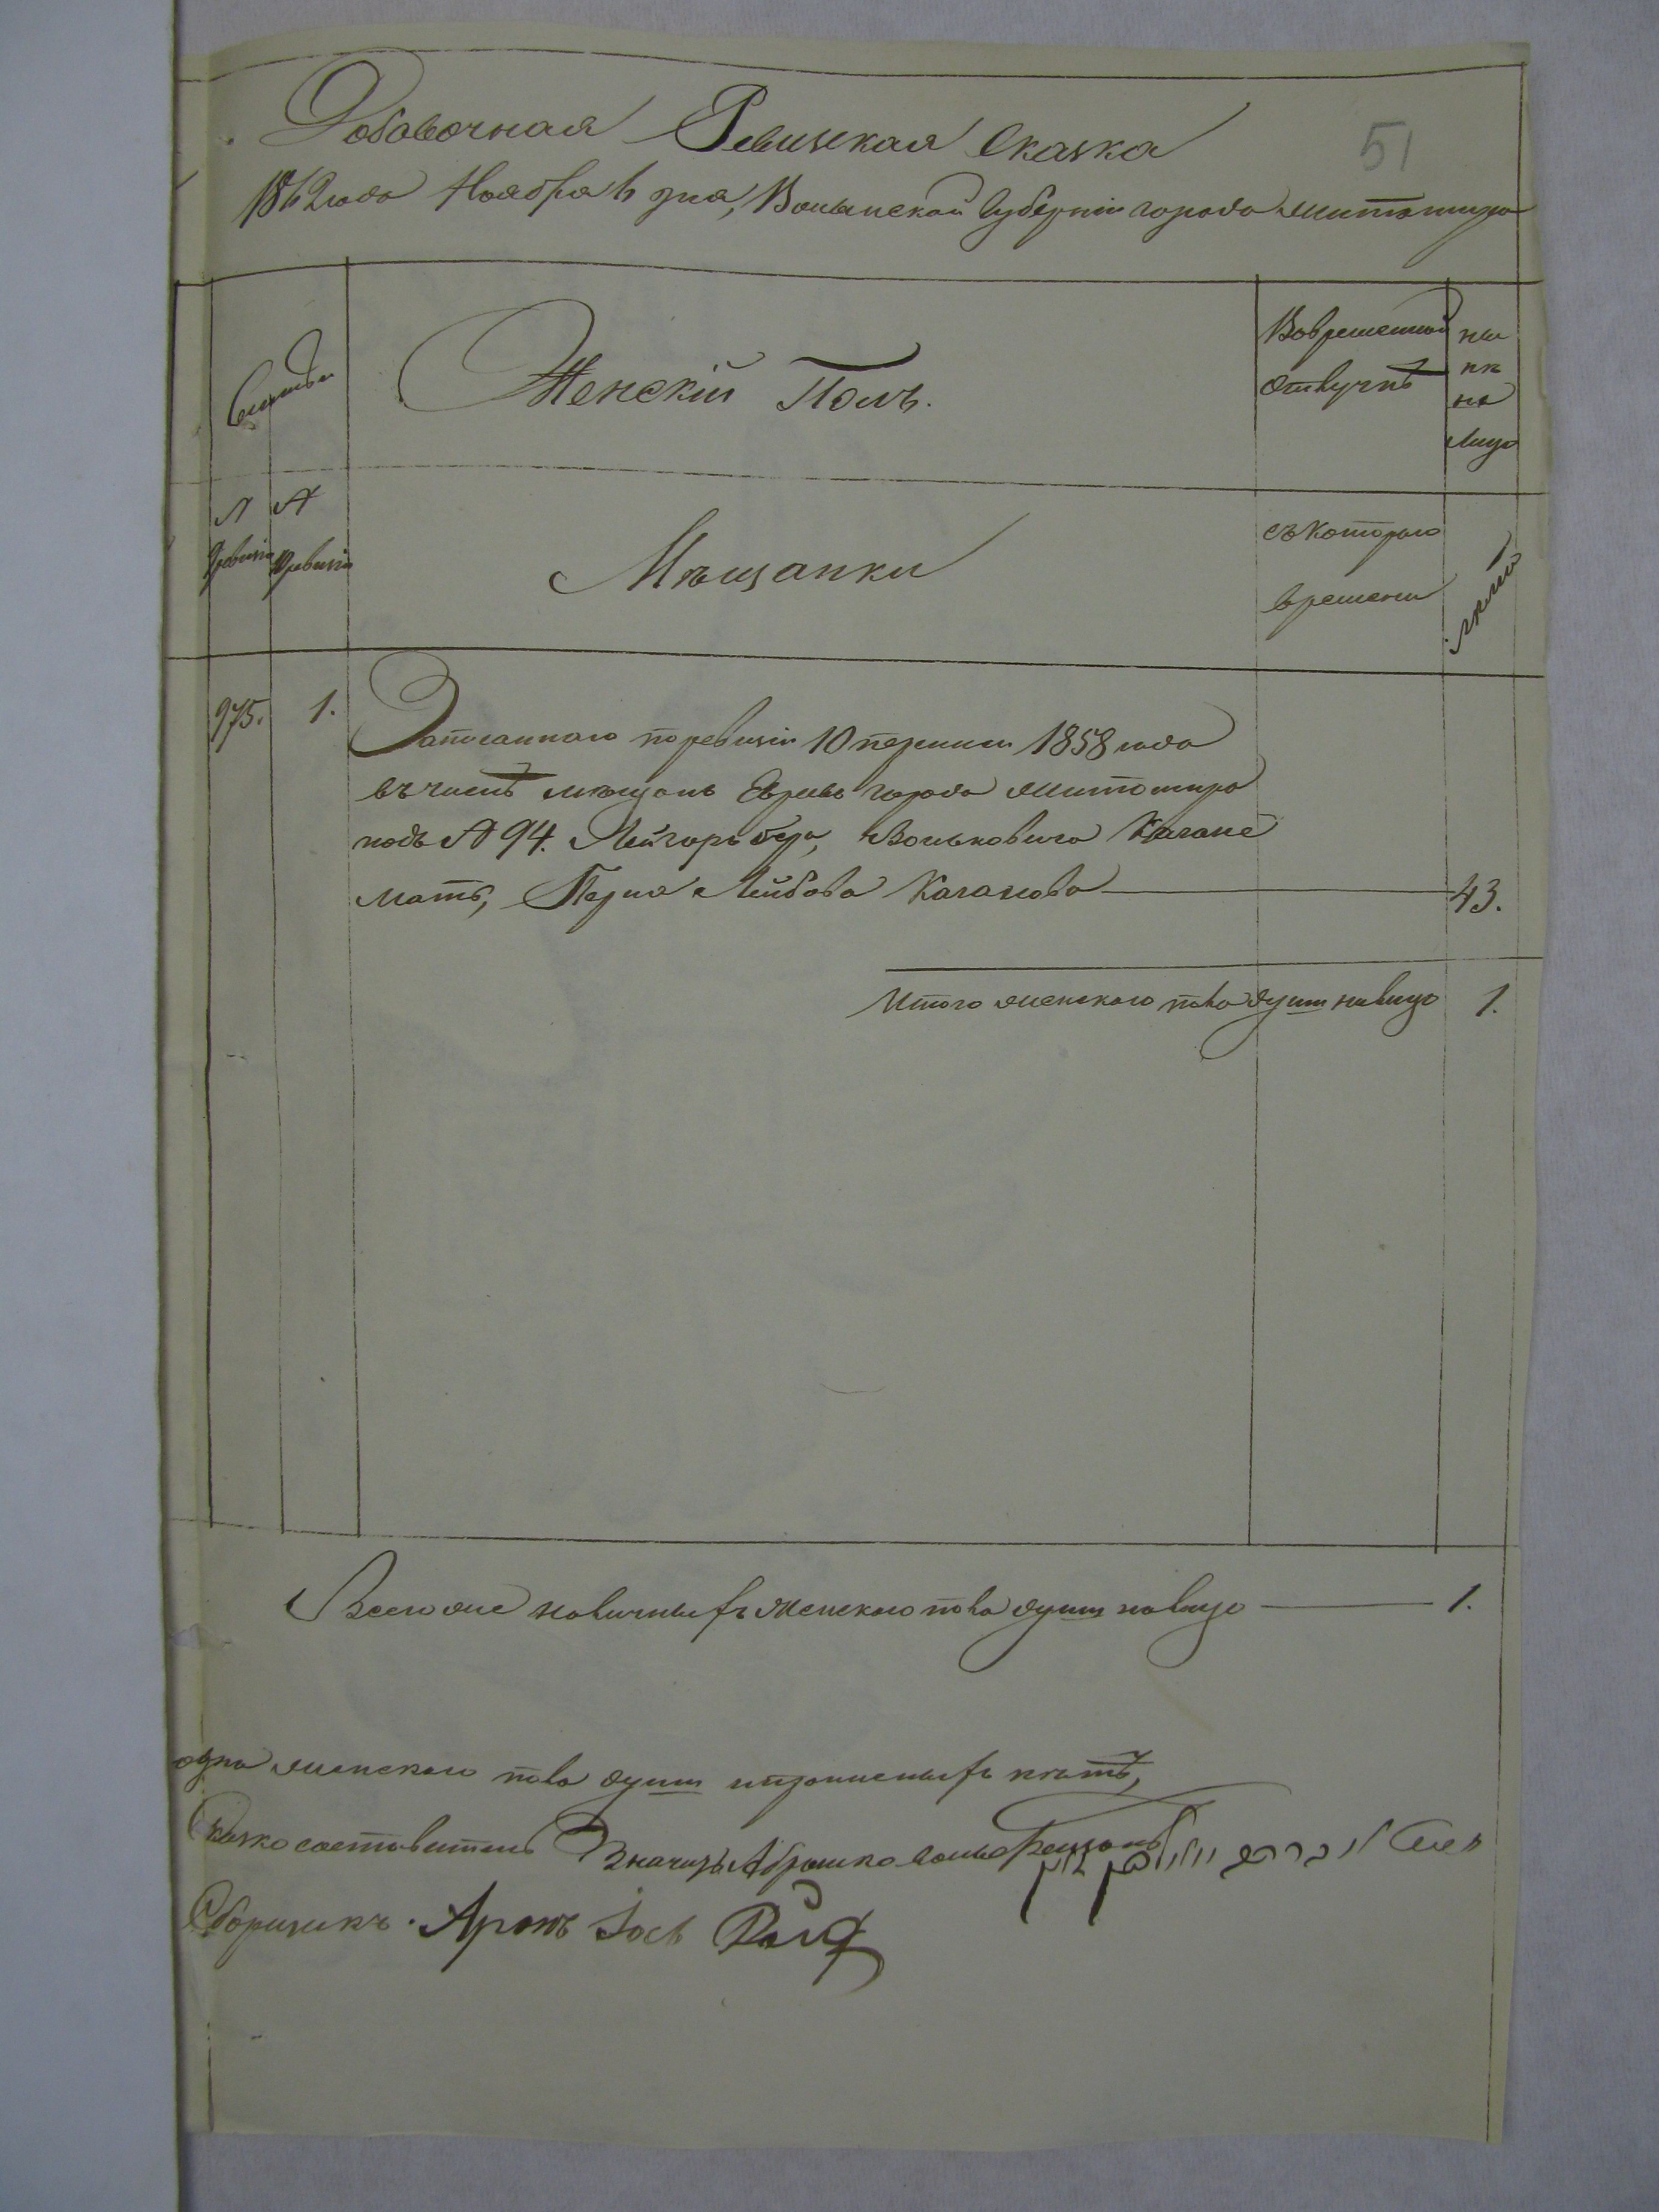 51
Добавочная Ревизская Сказка
1862 года Ноября 6 дня, Волынской Губерніи города Житомира
Семьи
Женскій Полъ.
Во временной
отлучкѣ
ны
нѣ
на
лицо
№ №
9 ревизіи 10 ревизіи
Мѣщанки
съ котораго
времени
лѣта
975. 1.
Записаннаго по ревизіи 10 переписи 1858 года
въ числѣ мѣщанъ Евреевъ города Житомира
подъ № 94. Лейзоръ Бера Вольковича Кагана
мать, Перля Лейбова Каганова — 43.
Итого женскаго пола душъ на лицо 1.
Всего же наличныхъ женскаго пола душъ на лицо — 1.
одна женскаго пола душъ
Сказкосоставитель Абрашко
Сборщикъ. Аронъ Іось